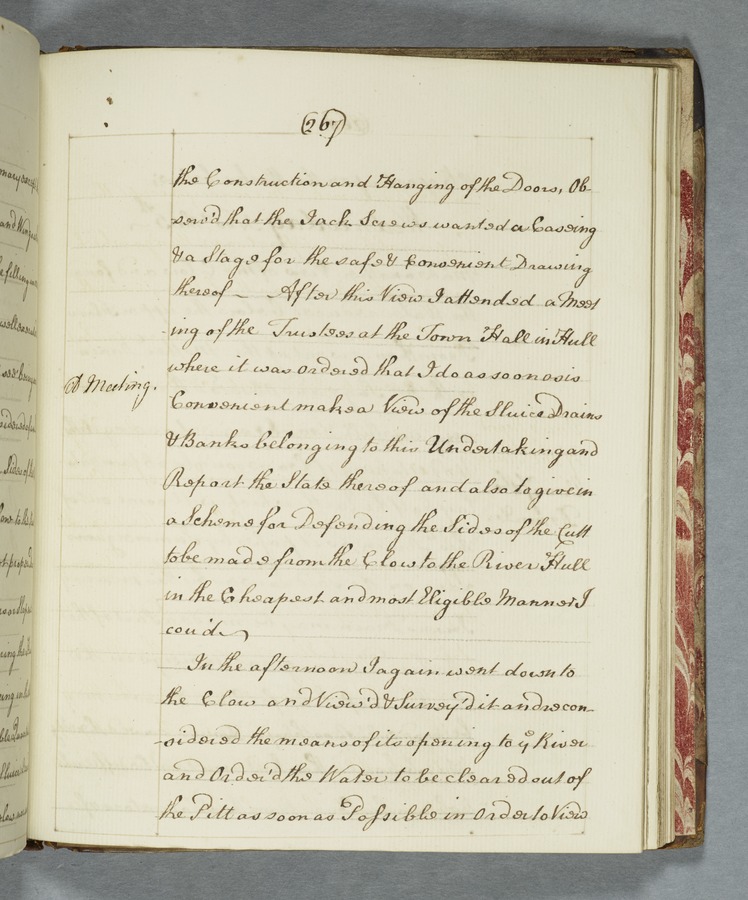 (267)
the Construction and Hanging of the Doors, Ob-
serv'd that the Jack Screws wanted a Caseing
& a Stage for the safe & Convenient Drawing
thereof — After this View I attended a Meet
ing of the Trustees at the Town Hall in Hull
where it was ordered that I do as soon as is
A Meeting.
Convenient make a View of the Sluice Drains
& Banks belonging to this Undertaking and
Report the State thereof and also to give in
a Scheme for Defending the Sides of the Cutt
to be made from the Clow to the River Hull
in the Cheapest and most Eligible Manner I
cou'd
In the afternoon I again went down to
the Clow and View'd & Survey'd it and recon-
sidered the means of its opening to ye River
and Order'd the Water to be cleared out of
the Pitt as soon as Possible in Order to View